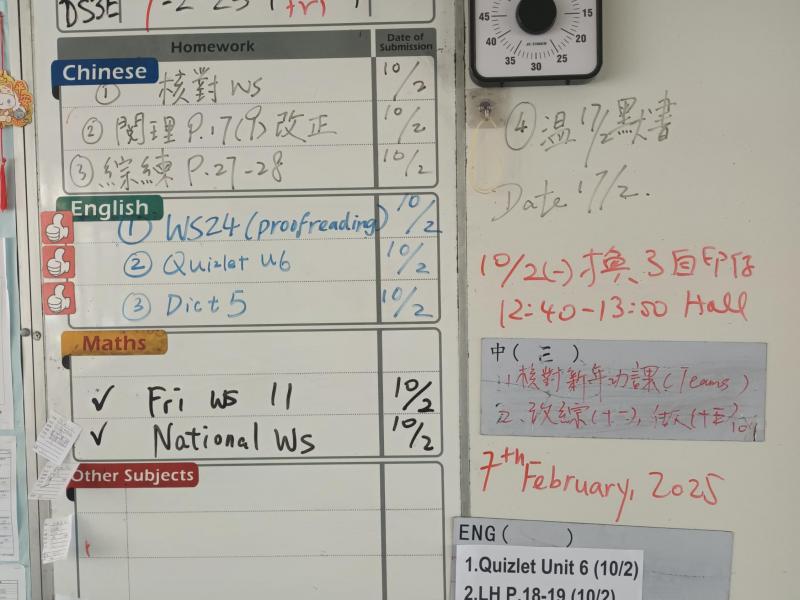 DSSE 7-2-25 (Fri)
Homework
Date of Submission
Chinese
① 核對 WS 10/2
② 閱理 P.17(9) 改正 10/2
③ 綜練 P.27-28 10/2
English
① WS24 (proofreading) 10/2
② Quizlet U6 10/2
③ Dict 5 10/2
Maths
✓ Fri WS 11 10/2
✓ National WS 10/2
Other Subjects
45 40 35 30 25 20 15
④ 溫 17/2 默書
Date 17/2.
10/2(一) 換
12:40-13:50 Hall
中( 三 )
1. 核對新年功課(Teams)
2. 改綜(十一),
7th February, 2025
ENG ( )
1.Quizlet Unit 6 (10/2)
2.LH P.18-19 (10/2)